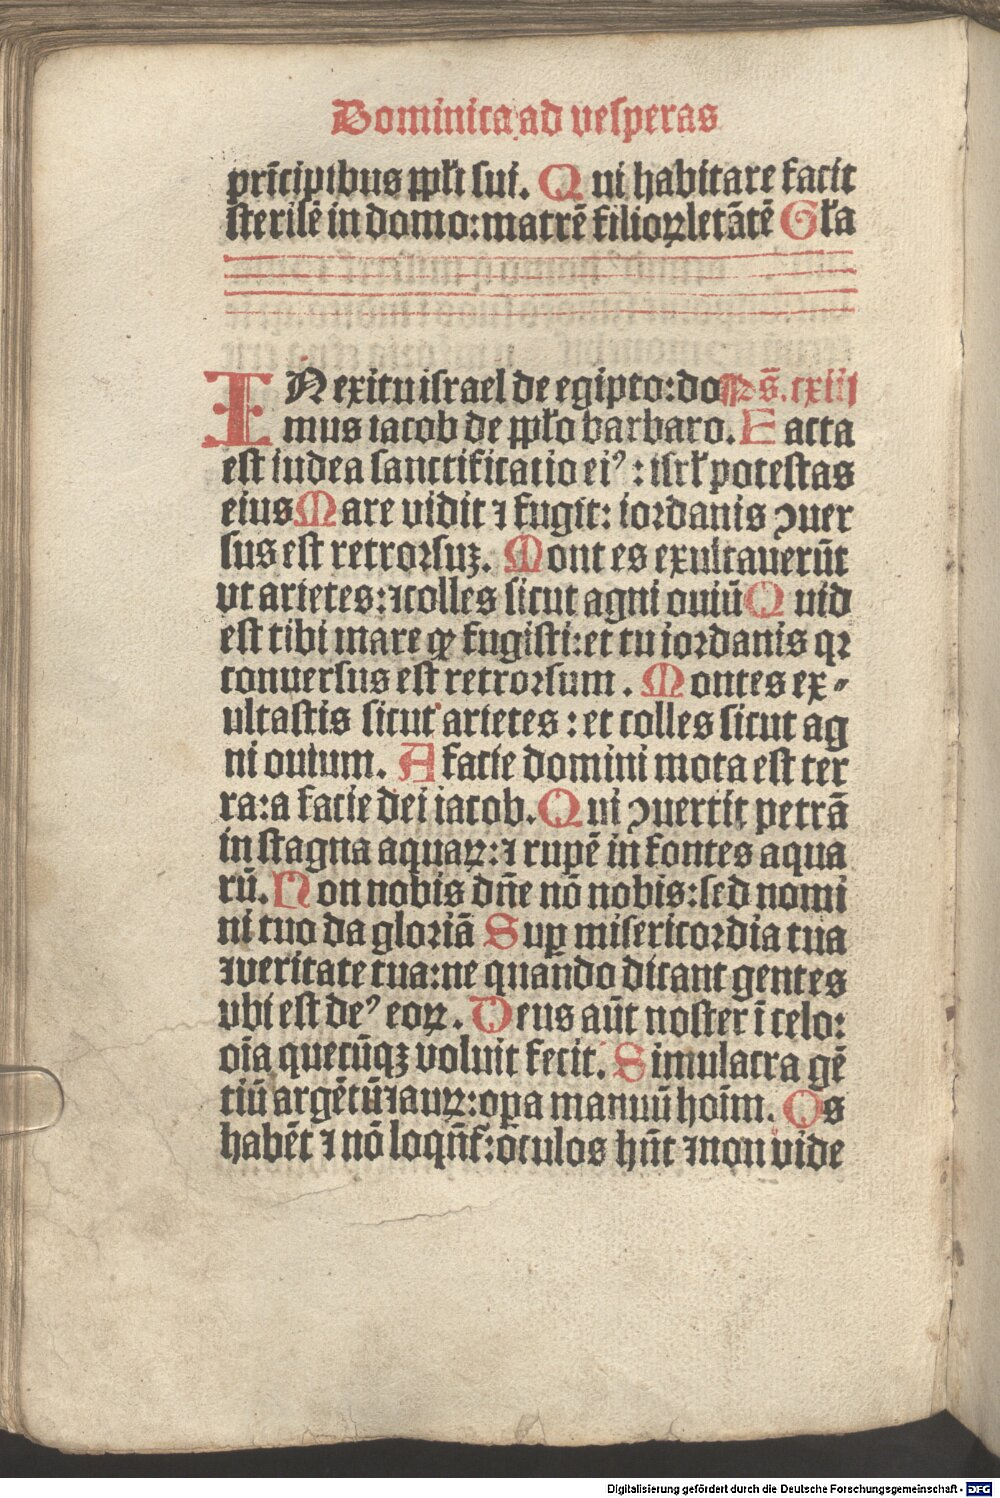 Dominica ad vesperas
pr̄icipibus ppl̄i sui. Qui habitare facit
sterilē in domo: matrē filioꝝ letātē Gl̄a
IN exitu israel de egipto: do Ps̄. cxiii
mus iacob de ppl̄o barbaro. Facta
est iudea sanctificatio eiꝰ: isrl̄ potestas
eius Mare vidit ⁊ fugit: iordanis ꝯuer
sus est retrorsuꝫ. Montes exultauerūt
vt arietes: ⁊ colles sicut agni ouiū Quid
est tibi mare ꝙ fugisti: et tu iordanis qꝛ
conuersus est retrorsum. Montes ex⸗
ultastis sicut arietes: et colles sicut ag
ni ouium. A facie domini mota est ter
ra: a facie dei iacob. Qui ꝯuertit petrā
in stagna aquaꝝ: ⁊ rupē in fontes aqua
rū. Non nobis dn̄e nō nobis: sed nomi
ni tuo da gloriā Suꝑ misericordia tua
⁊ veritate tua: ne quando dicant gentes
vbi est deꝰ eoꝝ. Deus aūt noster ī celo:
oīa quecūqꝫ voluit fecit. Simulacra gē
tiū argētū ⁊ auꝝ: oꝑa manuū hoīm. Os
habēt ⁊ nō loqūt̄: oculos hn̄t ⁊ non vide
Digitalisierung gefördert durch die Deutsche Forschungsgemeinschaft - DFG